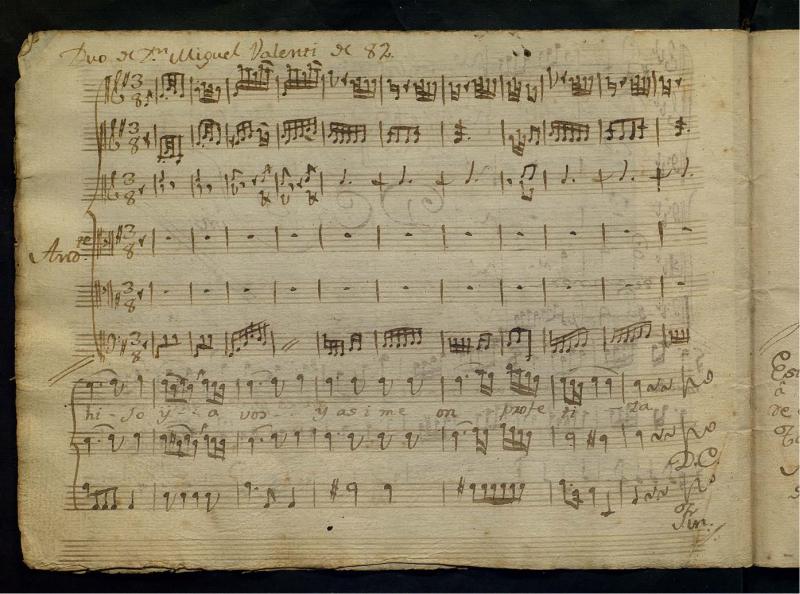 Duo de Dn Miguel Valenti de 82.
3
8
3
8
3
8
Andte
3
8
3
8
3
8
hi - Jo y - a vos - y asi me on profe ti za
D.C.
Fin.